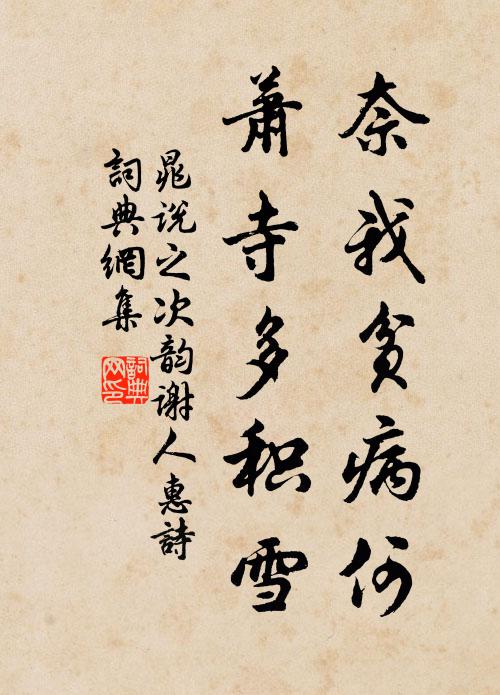 奈我貧病何
蕭寺多积雪
晁说之次韵谢人惠詩
詞典網集
詞典网印